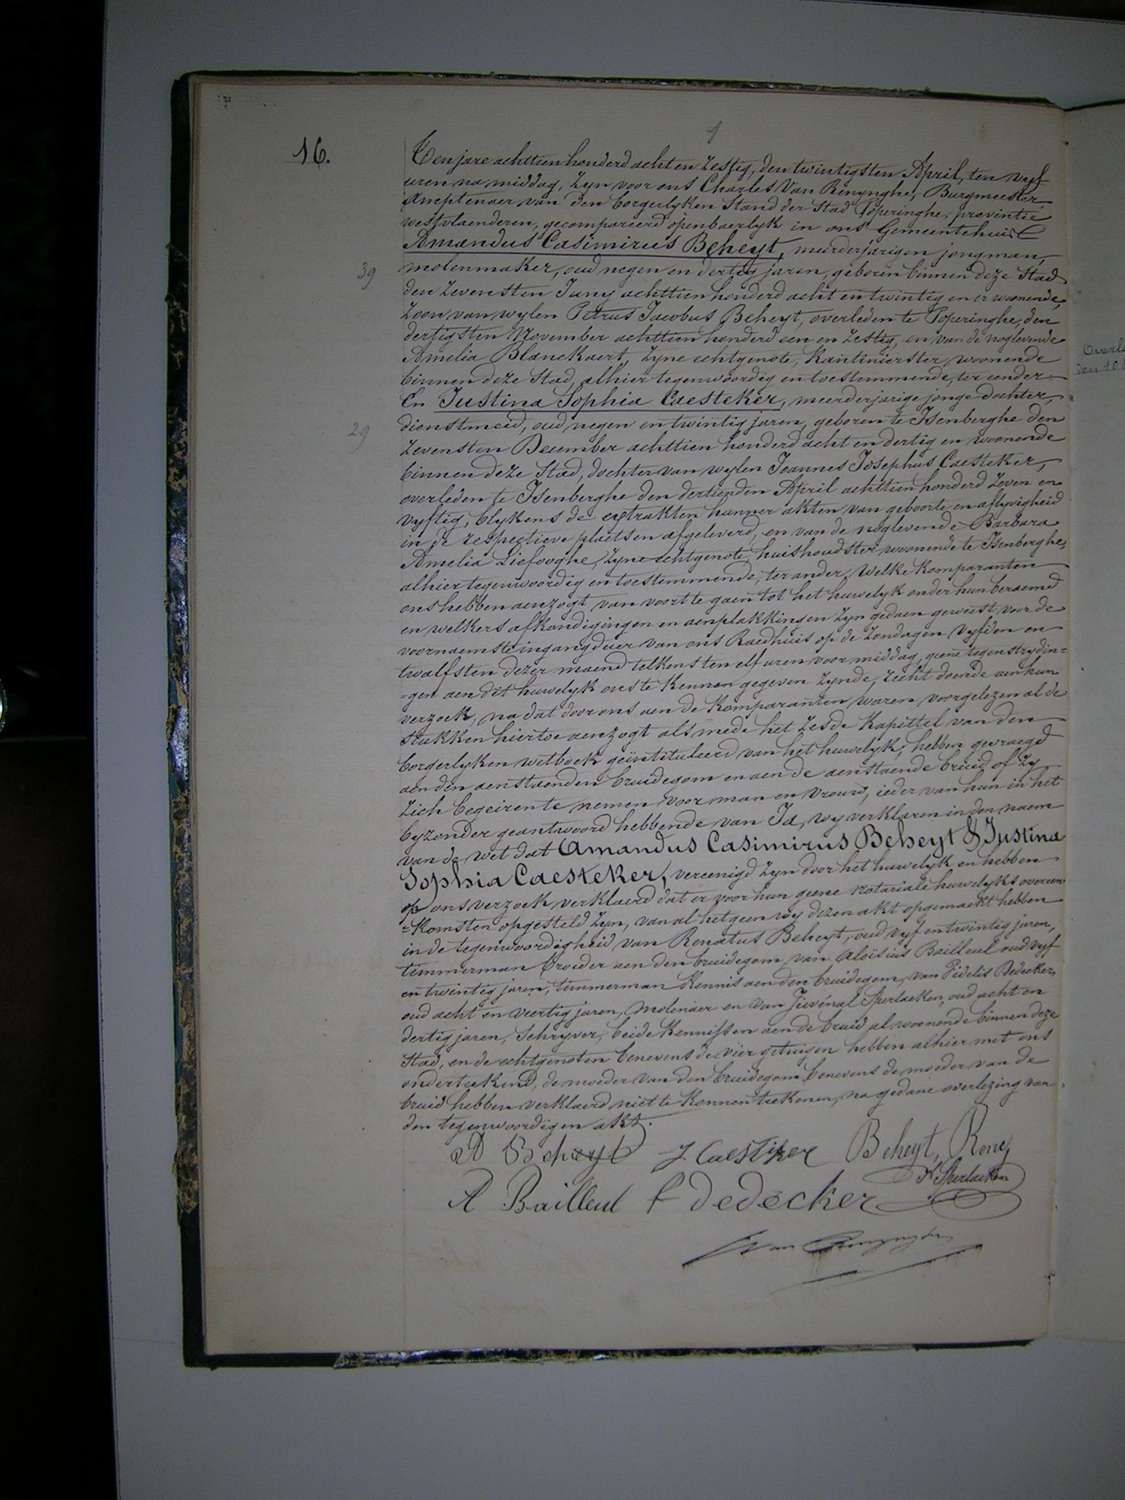 1
16.
Ten jare achttien honderd acht en zestig, den twintigsten April, ten vyf
uren na middag, zyn voor ons Charles Van Renynghe, Burgmeester
Amptenaer van den borgerlyken Stand der Stad Poperinghe, provintie
westvlaenderen, gecompareerd openbaerlyk in ons Gemeentehuis
Amandus Casimirus Beheyt, meerderjarigen jongman,
39
molenmaker, oud negen en dertig jaren, geboren binnen deze Stad
den zevensten Juny achttien honderd acht en twintig en er woonende,
zoon van wylen Petrus Jacobus Beheyt, overleden te Poperinghe, den
dertigsten November achttien honderd een en zestig, en van de noglevende
Amelia Blanckaert, zyne echtgenote, kantinierster, woonende
binnen deze Stad, alhier tegenwoordig en toestemmende, ter eender
En Justina Sophia Caesteker, meerderjarige jonge dochter,
29
dienstmeid, oud negen en twintig jaren, geboren te Isenberghe den
zevensten December achttien honderd acht en dertig en woonende
binnen deze Stad, dochter van wylen Joannes Josephus Caesteker,
overleden te Isenberghe den dertienden April achttien honderd zeven en
vyftig, blykens de extrakten hunner akten van geboorte en aflyvigheid
in de respectieve plaetsen afgeleverd, en van de noglevende Barbara
Amelia Liefooghe, zyne echtgenote, huishoudster, woonende te Isenberghe,
alhier tegenwoordig en toestemmende, ter ander, welke komparanten
ons hebben aenzogt van voort te gaen tot het huwelyk onder hun beraemd
en welkers afkondigingen en aenplakkingen zyn gedaen geweest voor de
voornaemste ingangduer van ons Raedhuis op de Zondagen vyfden en
twalfsten dezer maend telkens ten elf uren voor middag, geene tegenstrydin-
-gen aen dit huwelyk ons te kennen gegeven zynde, recht doende aen hun
verzoek, na dat door ons aen de komparanten waren voorgelezen al de
stukken hiertoe aenzogt als mede het zesde kapittel van den
borgerlyken wetboek geïntituleerd van het huwelyk, hebben gevraegd
aen den aenstaenden bruidegom en aen de aenstaende bruid of zy
zich begeiren te nemen voor man en vrouw, ieder van hun in het
byzonder geantwoord hebbende van Ja, wy verklaren in den naem
van de wet dat Amandus Casimirus Beheyt & Justina
Sophia Caesteker, vereenigd zyn door het huwelyk en hebben
op ons verzoek verklaerd dat er voor hun geene notariale huwelyks overeen
=komsten opgesteld zyn, van al hetgeen wy dezen akt opgemaekt hebben
in de tegenwoordigheid van Renatus Beheyt, oud vyf en twintig jaren,
timmerman broeder aen den bruidegom, van Aloïsius Bailleul oud vyf
en twintig jaren, timmerman kennis aen den bruidegom, van Fidelis Dedecker,
oud acht en veertig jaren, molenaer en van Juvénal Sperlaeken, oud acht en
dertig jaren, Schryver, beide kennissen aen de bruid al woonende binnen deze
Stad, en de echtgenoten benevens de vier getuigen hebben alhier met ons
onderteekend, de moeder van den bruidegom benevens de moeder van de
bruid hebben verklaerd niet te konnen teekenen, na gedane overlezing van
den tegenwoordigen akt.
A Beheyt J Caesteker Beheyt, René
J Sperlaeken
A Bailleul f dedecker
Van Renynghe